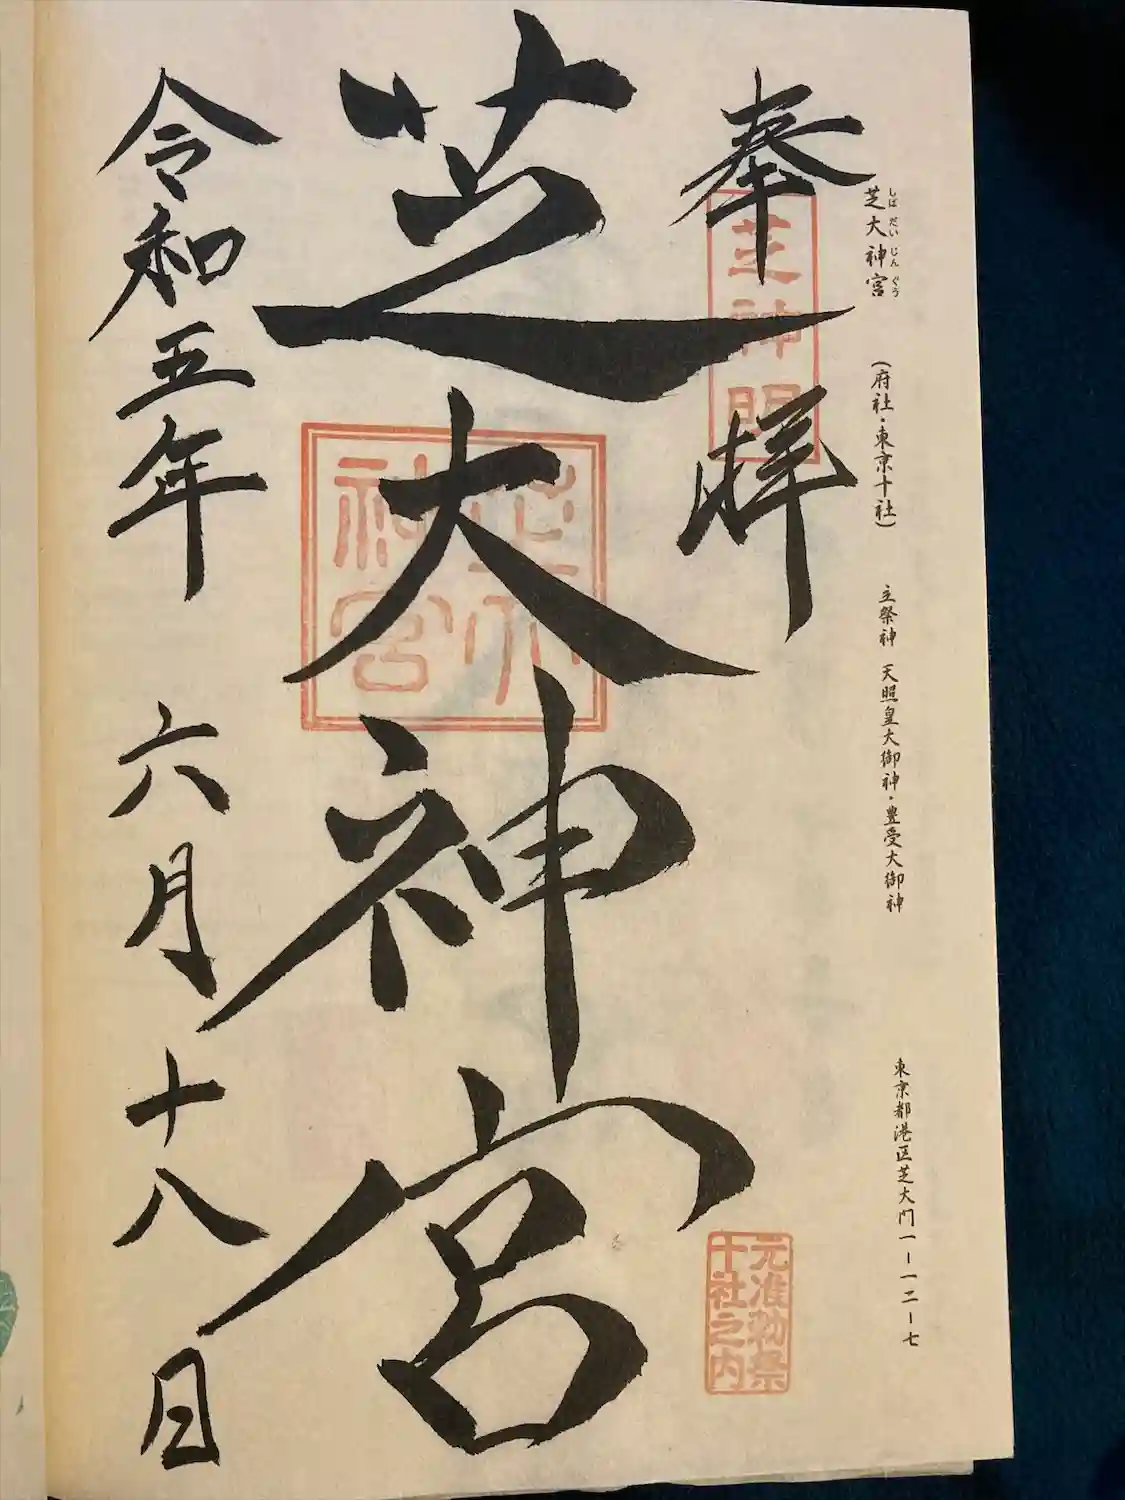 芝大神宮
しば だい じん ぐう
(府社・東京十社)
主祭神 天照皇大御神・豊受大御神
東京都港区芝大門一-一二-七
奉拝
芝神明
元准勅祭
十社之内
芝大神宮
芝大
神宮
令和五年 六月十八日